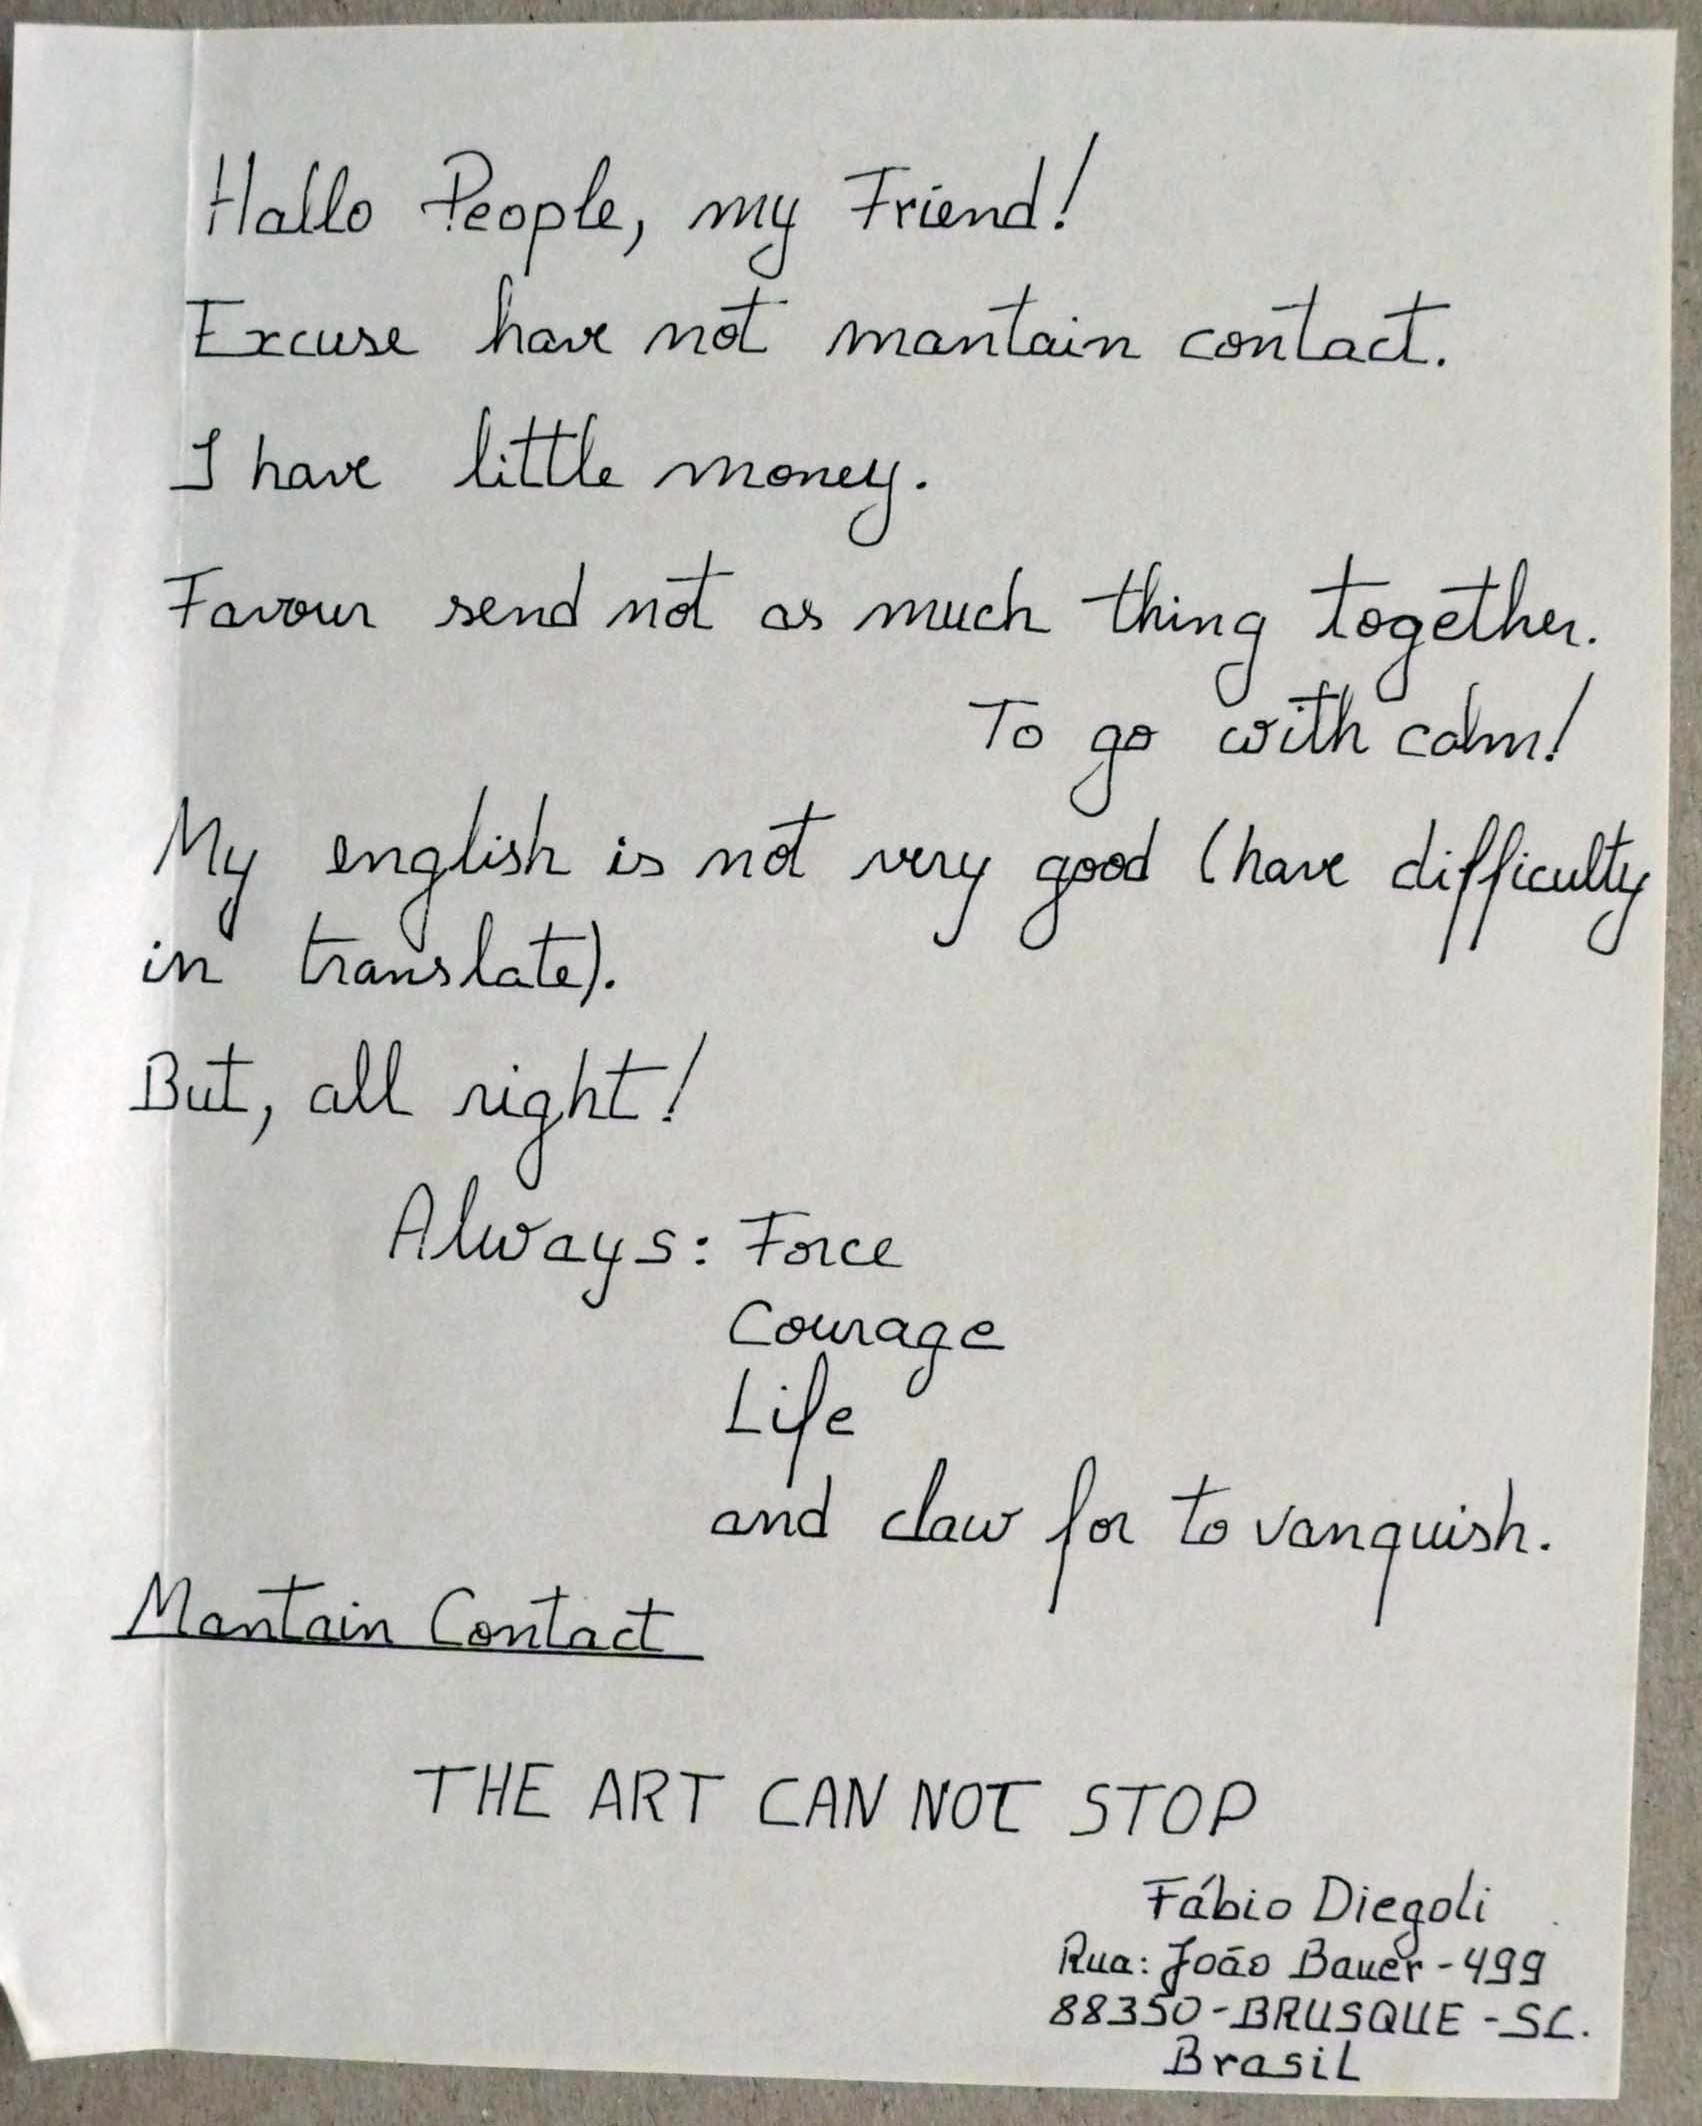 Hallo People, my Friend!
Excuse have not mantain contact.
I have little money.
Favour send not as much thing together.
To go with calm!
My english is not very good (have difficulty
in translate).
But, all right!
Always: Force
Courage
Life
and claw for to vanquish.
Mantain Contact
THE ART CAN NOT STOP
Fábio Diegoli
Rua: João Bauer - 499
88350 - BRUSQUE - SC.
Brasil